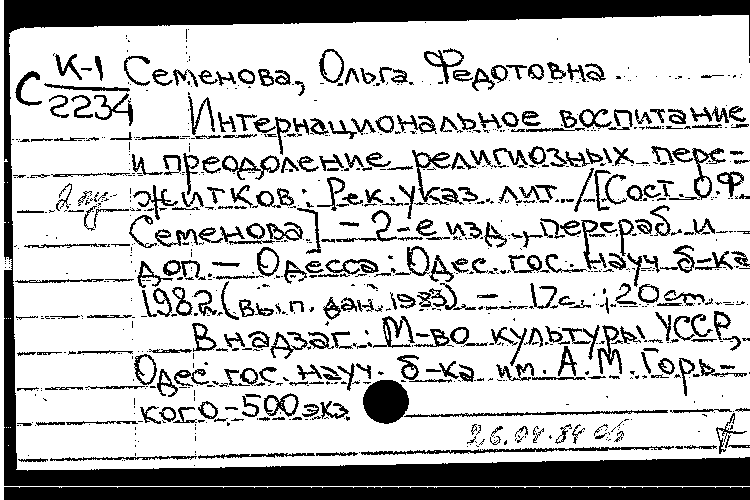 К-1 Семенова, Ольга Федотовна.
С 2234
Интернациональное воспитание
и преодоление религиозных пере=
житков: Рек. указ. лит /[Сост. О.Ф
Семенова] - 2-е изд., перераб. и
доп. - Одесса: Одес. гос. науч б-ка
1982. (вып. дан. 1983). - 17с.; 20см
В надзаг: М-во культуры УССР,
Одес гос. науч. б-ка им. А. М. Горь-
кого. - 500 экз
26.04.84